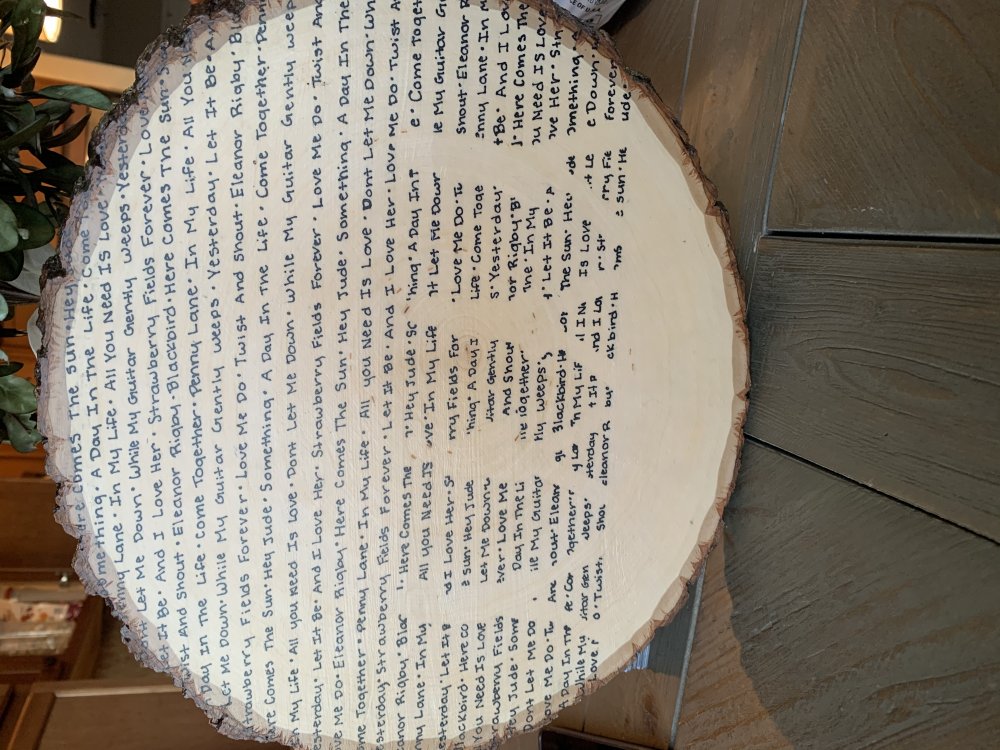 Comes The Sun · Hey
A Day In The Life · Come
Lane · In My Life · All You Need Is Love
Let Me Down · While My Guitar Gently Weeps ·
It Be · And I Love Her · Strawberry Fields Forever · Love
And Shout · Eleanor Rigby · Blackbird · Here Comes The Sun ·
Day In The Life · Come Together · Penny Lane · In My Life · All You
Me Down · While My Guitar Gently Weeps · Yesterday · Let It Be · A
trawberry Fields Forever · Love Me Do · Twist And Shout · Eleanor Rigby · Bl
ere Comes The Sun · Hey Jude · Something · A Day In The Life · Come Together · Penn
My Life · All You Need Is Love · Dont Let Me Down · While My Guitar Gently Weep
esterday · Let It Be · And I Love Her · Strawberry Fields Forever · Love Me Do · Twist And
ve Me Do · Eleanor Rigby · Here Comes The Sun · Hey Jude · Something · A Day In The
ome Together · Penny Lane · In My Life · All You Need Is Love · Dont Let Me Down · Wh
esterday · Strawberry Fields Forever · Let It Be · And I Love Her · Love Me Do · Twist A
anor Rigby · Blac Here Comes The Hey Jude · So hing · A Day In T e Come Toget
ny Lane · In My All You Need Is ove · In My Life t Let Me Down le My Guitar G
esterday · Let It B d I Love Her · S rry Fields For Love Me Do · Tw Shout · Eleanor R
lackbird · Here Co e Sun · Hey Jude hing · A Day I Life · Come Toge enny Lane · In M
You Need Is Love Let Me Down itar Gently s · Yesterday t Be · And I Lov
rawberry Fields ever · Love Me And Shou nor Rigby · Bl Here Comes The
Hey Jude · Some Day In The Li Together · ne · In My ou Need Is Love
Dont Let Me Do ile My Guitar My Weeps · Let It Be · A ve Her · Str
ove Me Do · Tw And out · Eleanr Blackbird · He The Sun · Hey de omething
A Day In The Come ogether · In My Lif ll In Is Love t Le e Down
While My itar Gen Weeps · sterday t It nd I Lo r · Str rry Fie Forever
Love o · Twist Shou eleanor R by · ckbird · H e Sun · He ude